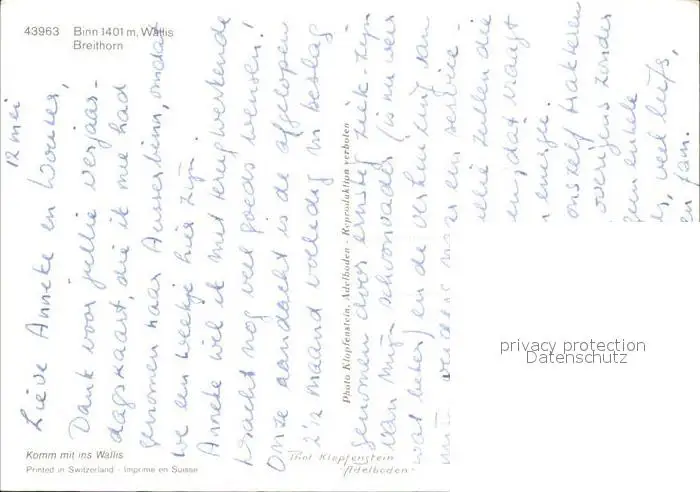 43963 Binn 1401 m, Wallis
Breithorn
12 mei
Lieve Anneke en Wouter,
Dank voor jullie verjaar-
dagskaart, die ik mee had
genomen naar Ausserbinn, omdat
we een weekje hier zijn.
Anneke wil ik met terugwerkende
kracht nog veel goeds wensen!
Onze aandacht is de afgelopen
2½ maand volledig in beslag
genomen door ernstig ziek-zijn
van mijn schoonvader (is nu weer
wat beter) en de verhuizing van
mijn
een service-
jullie zullen die
en, dat vraagt
energie.
onszelf
overigens zonder
enkele
veel liefs,
en fam.
Photo Klopfenstein, Adelboden - Reproduktion verboten
Komm mit ins Wallis
Printed in Switzerland - Imprimé en Suisse
Phot Klopfenstein
-Adelboden-
privacy protection
Datenschutz